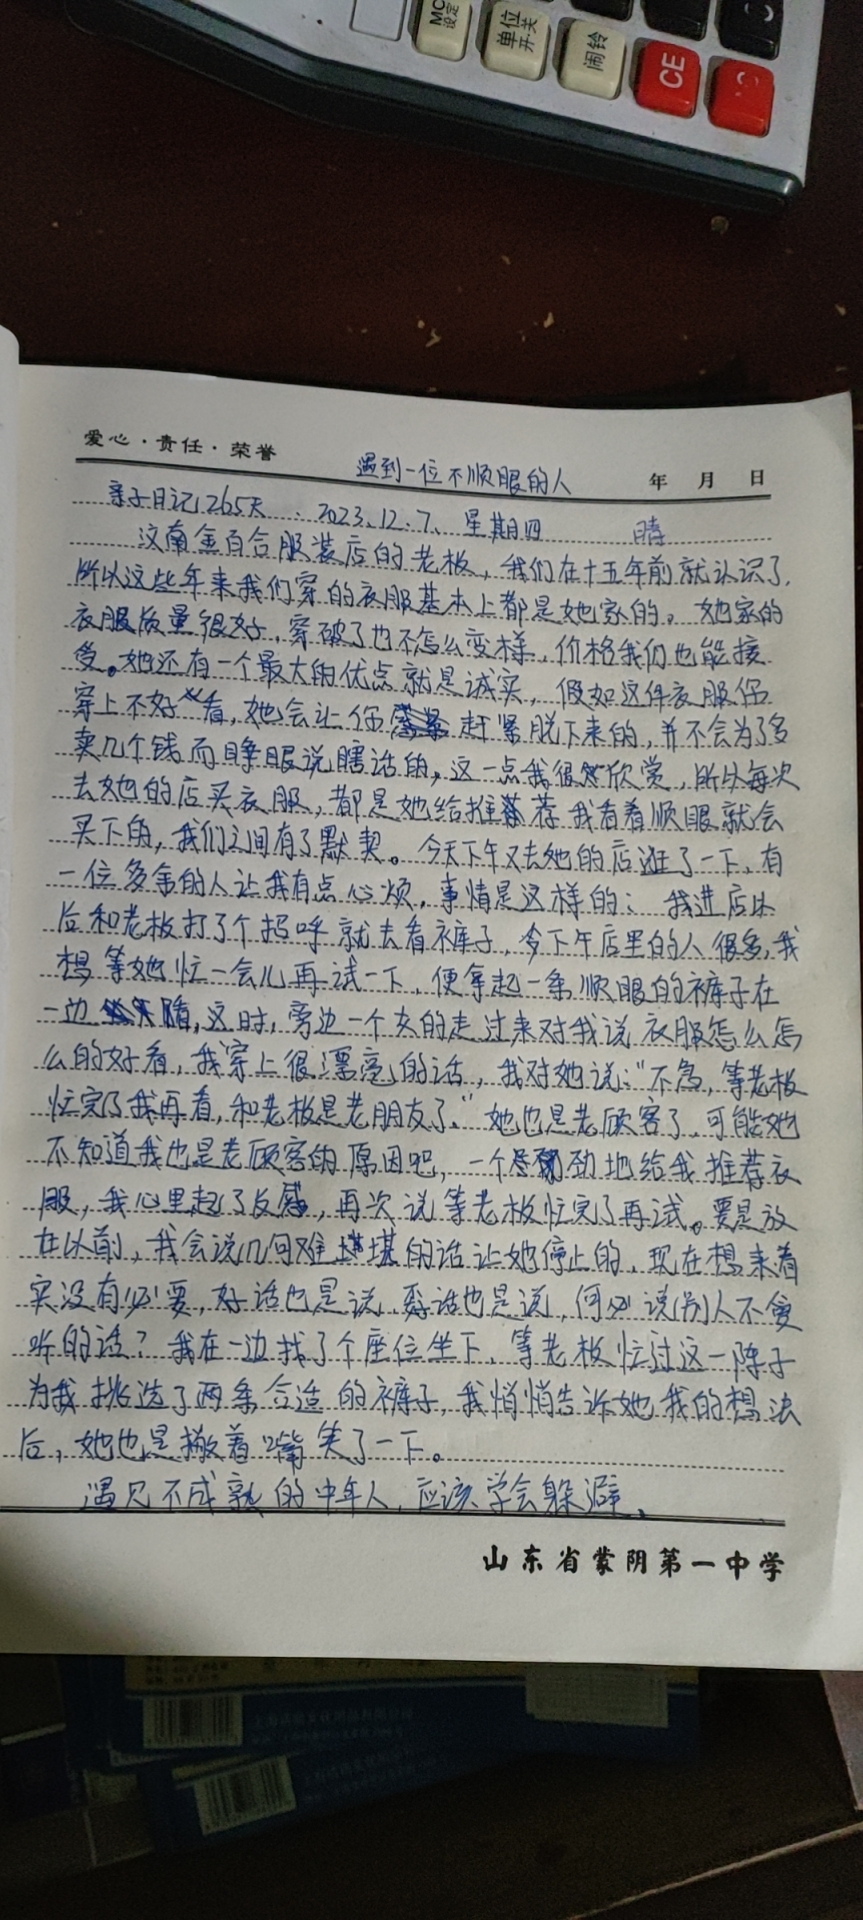 MC
设定
单位
开·关
闹铃
CE
爱心·责任·荣誉
遇到一位不顺眼的人
年 月 日
亲子日记265天 2023.12.7. 星期四 晴
汶南金百合服装店的老板,我们在十五年前就认识了,
所以这些年来我们穿的衣服基本上都是她家的。她家的
衣服质量很好,穿破了也不怎么变样,价格我们也能接
受。她还有一个最大的优点就是诚实,假如这件衣服你
穿上不好看,她会让你赶紧脱下来的,并不会为了多
卖几个钱而睁眼说瞎话的,这一点我很欣赏,所以每次
去她的店买衣服,都是她给推荐我看着顺眼就会
买下的,我们之间有了默契。今天下午又去她的店逛了一下,有
一位多余的人让我有点心烦,事情是这样的:我进店以
后和老板打了个招呼就去看裤子,今下午店里的人很多,我
想等她忙一会儿再试一下,便拿起一条顺眼的裤子在
一边,这时,旁边一个女的走过来对我说衣服怎么怎
么的好看,我穿上很漂亮的话,我对她说:“不急,等老板
忙完了我再看,和老板是老朋友了。”她也是老顾客了,可能她
不知道我也是老顾客的原因吧,一个劲地给我推荐衣
服,我心里起了反感,再次说等老板忙完了再试。要是放
在以前,我会说几句难堪的话让她停止的,现在想来着
实没有必要,好话也是说,孬话也是说,何必说别人不爱
听的话?我在一边找了个座位坐下,等老板忙过这一阵子
为我挑选了两条合适的裤子,我悄悄告诉她我的想法
后,她也是撇着嘴笑了一下。
遇见不成熟的中年人,应该学会躲避。
山东省蒙阴第一中学